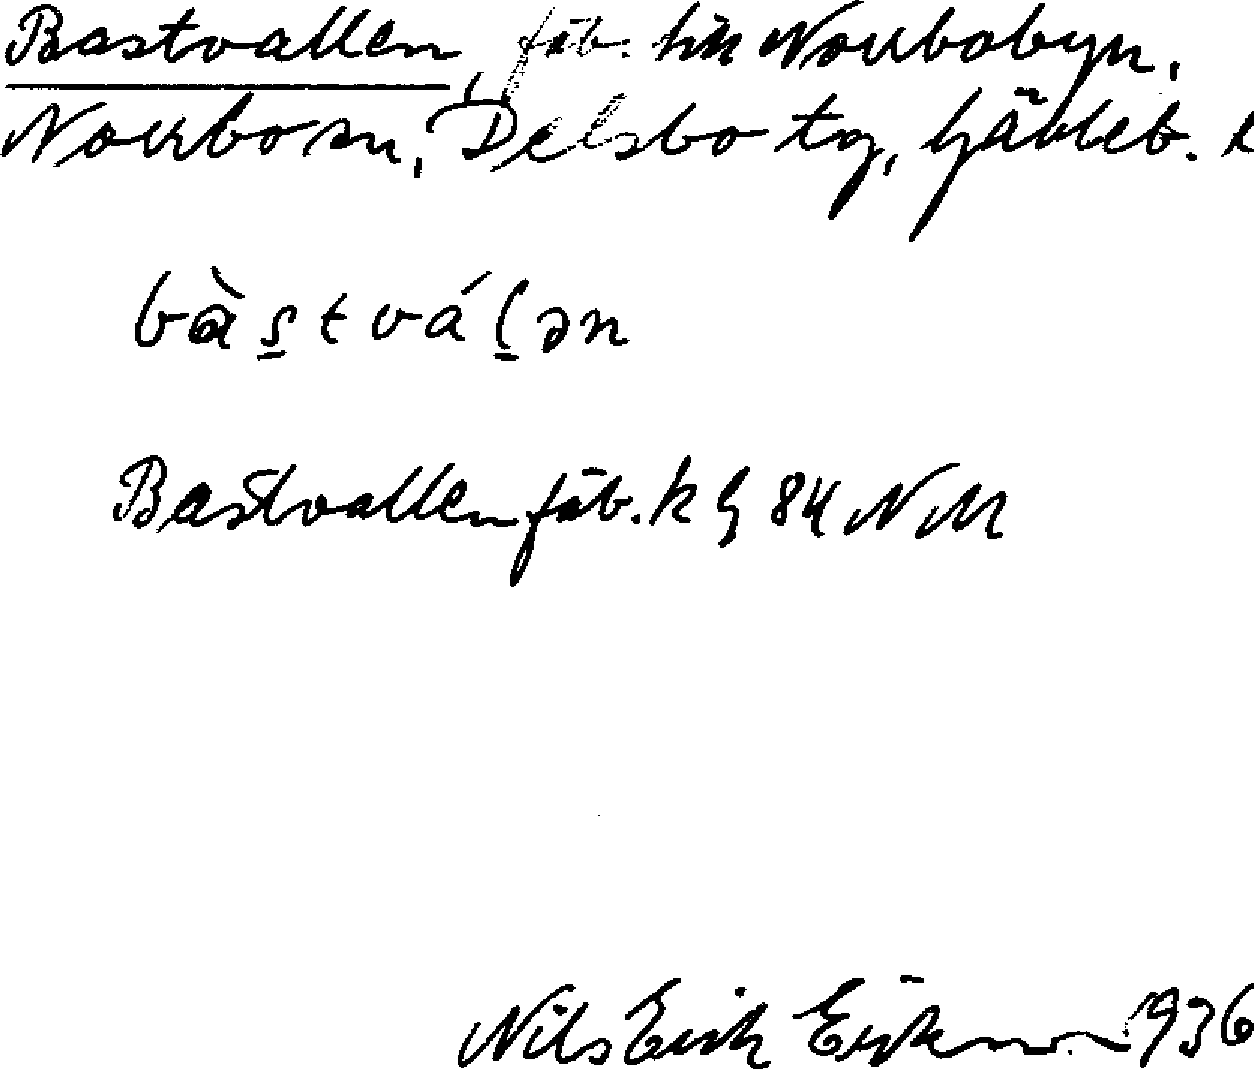 Bastvallen, fäb. till Norrbobyn,
Norrbo sn, Delsbo tg, Gävleb. l
bàs̱tváḻən
Bastvallen fäb. k G 84 NM
Nils Erik 1936